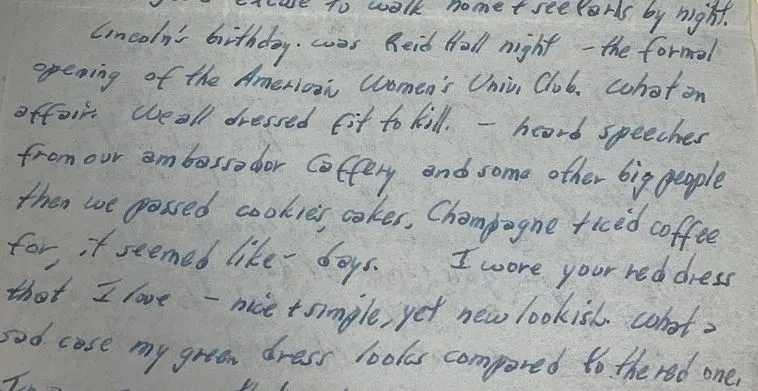 excuse to walk home + see Paris by night.
Lincoln's birthday. was Reid Hall night - the formal
opening of the American Women's Univ. Club. What an
affair. We all dressed fit to kill. - heard speeches
from our ambassador Caffery and some other big people
then we passed cookies, cakes, Champagne + iced coffee
for, it seemed like - days. I wore your red dress
that I love - nice + simple, yet new lookish. What a
sad case my green dress looks compared to the red one.